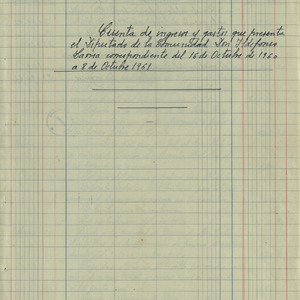 Cuenta de ingreso y gastos que presenta
el Diputado de la Comunidad Don Ildefonso
Larrea correspondiente del 16 de Octubre de 1960
a 8 de Octubre 1961